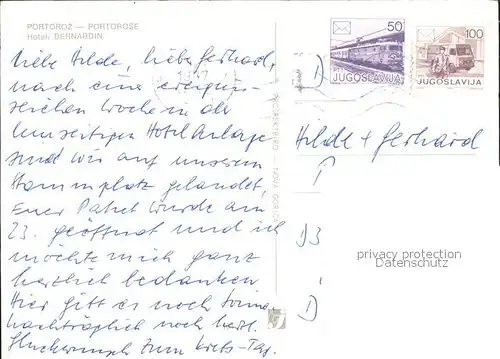 PORTOROŽ — PORTOROSE
Hoteli BERNARDIN
Liebe Hilde, lieber Gerhard,
nach einer ereignis-
reichen Woche in der
Hotel Anlage
sind wir auf unserem
Stammplatz gelandet,
Euer Paket wurde am
23. geöffnet und ich
möchte mich ganz
herzlich bedanken.
Hier gibt es noch Sonne,
nachträglich noch herzl.
Glückwunsch zum Tag.
50
JUGOSLAVIJA
100
JUGOSLAVIJA
Hilde + Gerhard
D
privacy protection
Datenschutz
D